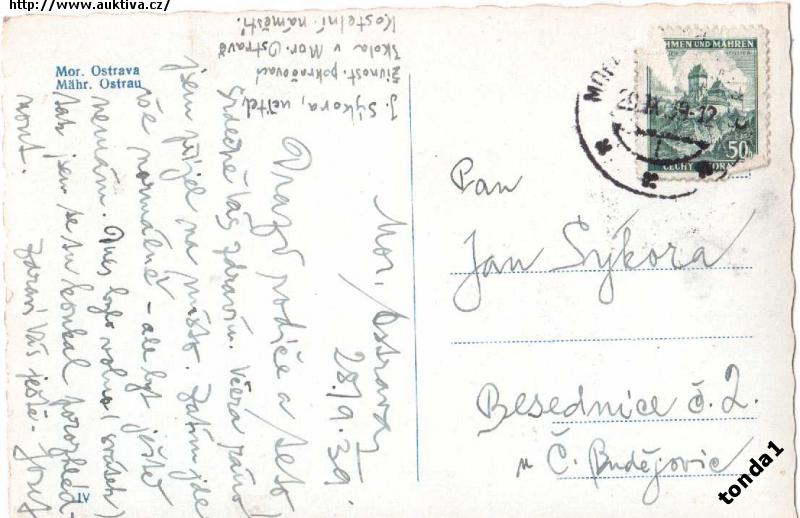 http://www.auktiva.cz/
Mor. Ostrava
Mähr. Ostrau
J. Sýkora, učitel
živnost. pokračovací
škola v Mor. Ostravě
Kostelní náměstí.
Mor. Ostrava
28/9.39.
Drazí rodiče a teto!
Srdečně Vás zdravím. Včera ráno
jsem přijel na místo. Zatím jde
vše normálně - ale byt ještě
nemám. Dnes bylo volno (svátek)
tak jsem se tu koukal porozhléd-
nout.
Zdraví Vás ještě Josef
IV
HMEN UND MÄHREN
50
ČECHY MORA
MOR
28.IX.39-12
Pan
Jan Sýkora
Besednice č. 2.
u Č. Budějovic
tonda1